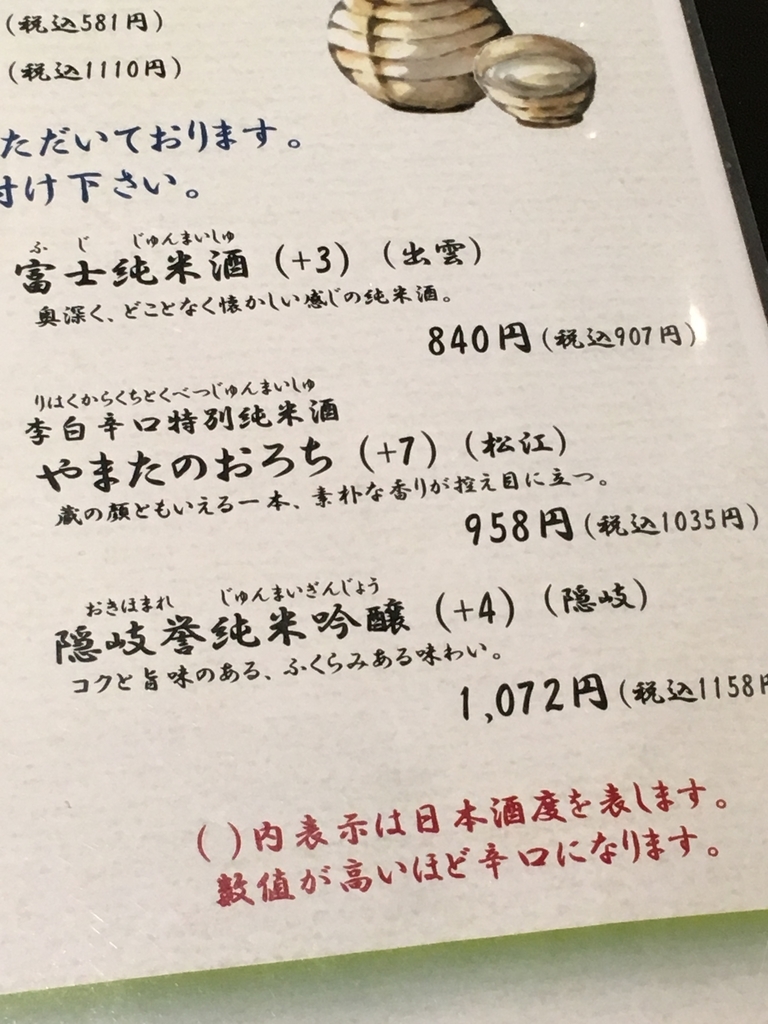 (税込581円)
(税込1110円)
ただいております。
付け下さい。
ふじ じゅんまいしゅ
富士純米酒 (+3) (出雲)
奥深く、どことなく懐かしい感じの純米酒。
840円(税込907円)
りはくからくちとくべつじゅんまいしゅ
李白辛口特別純米酒
やまたのおろち (+7) (松江)
蔵の顔ともいえる一本、素朴な香りが控え目に立つ。
958円(税込1035円)
おきほまれ じゅんまいぎんじょう
隠岐誉純米吟醸 (+4) (隠岐)
コクと旨味のある、ふくらみある味わい。
1,072円(税込1158円
( )内表示は日本酒度を表します。
数値が高いほど辛口になります。